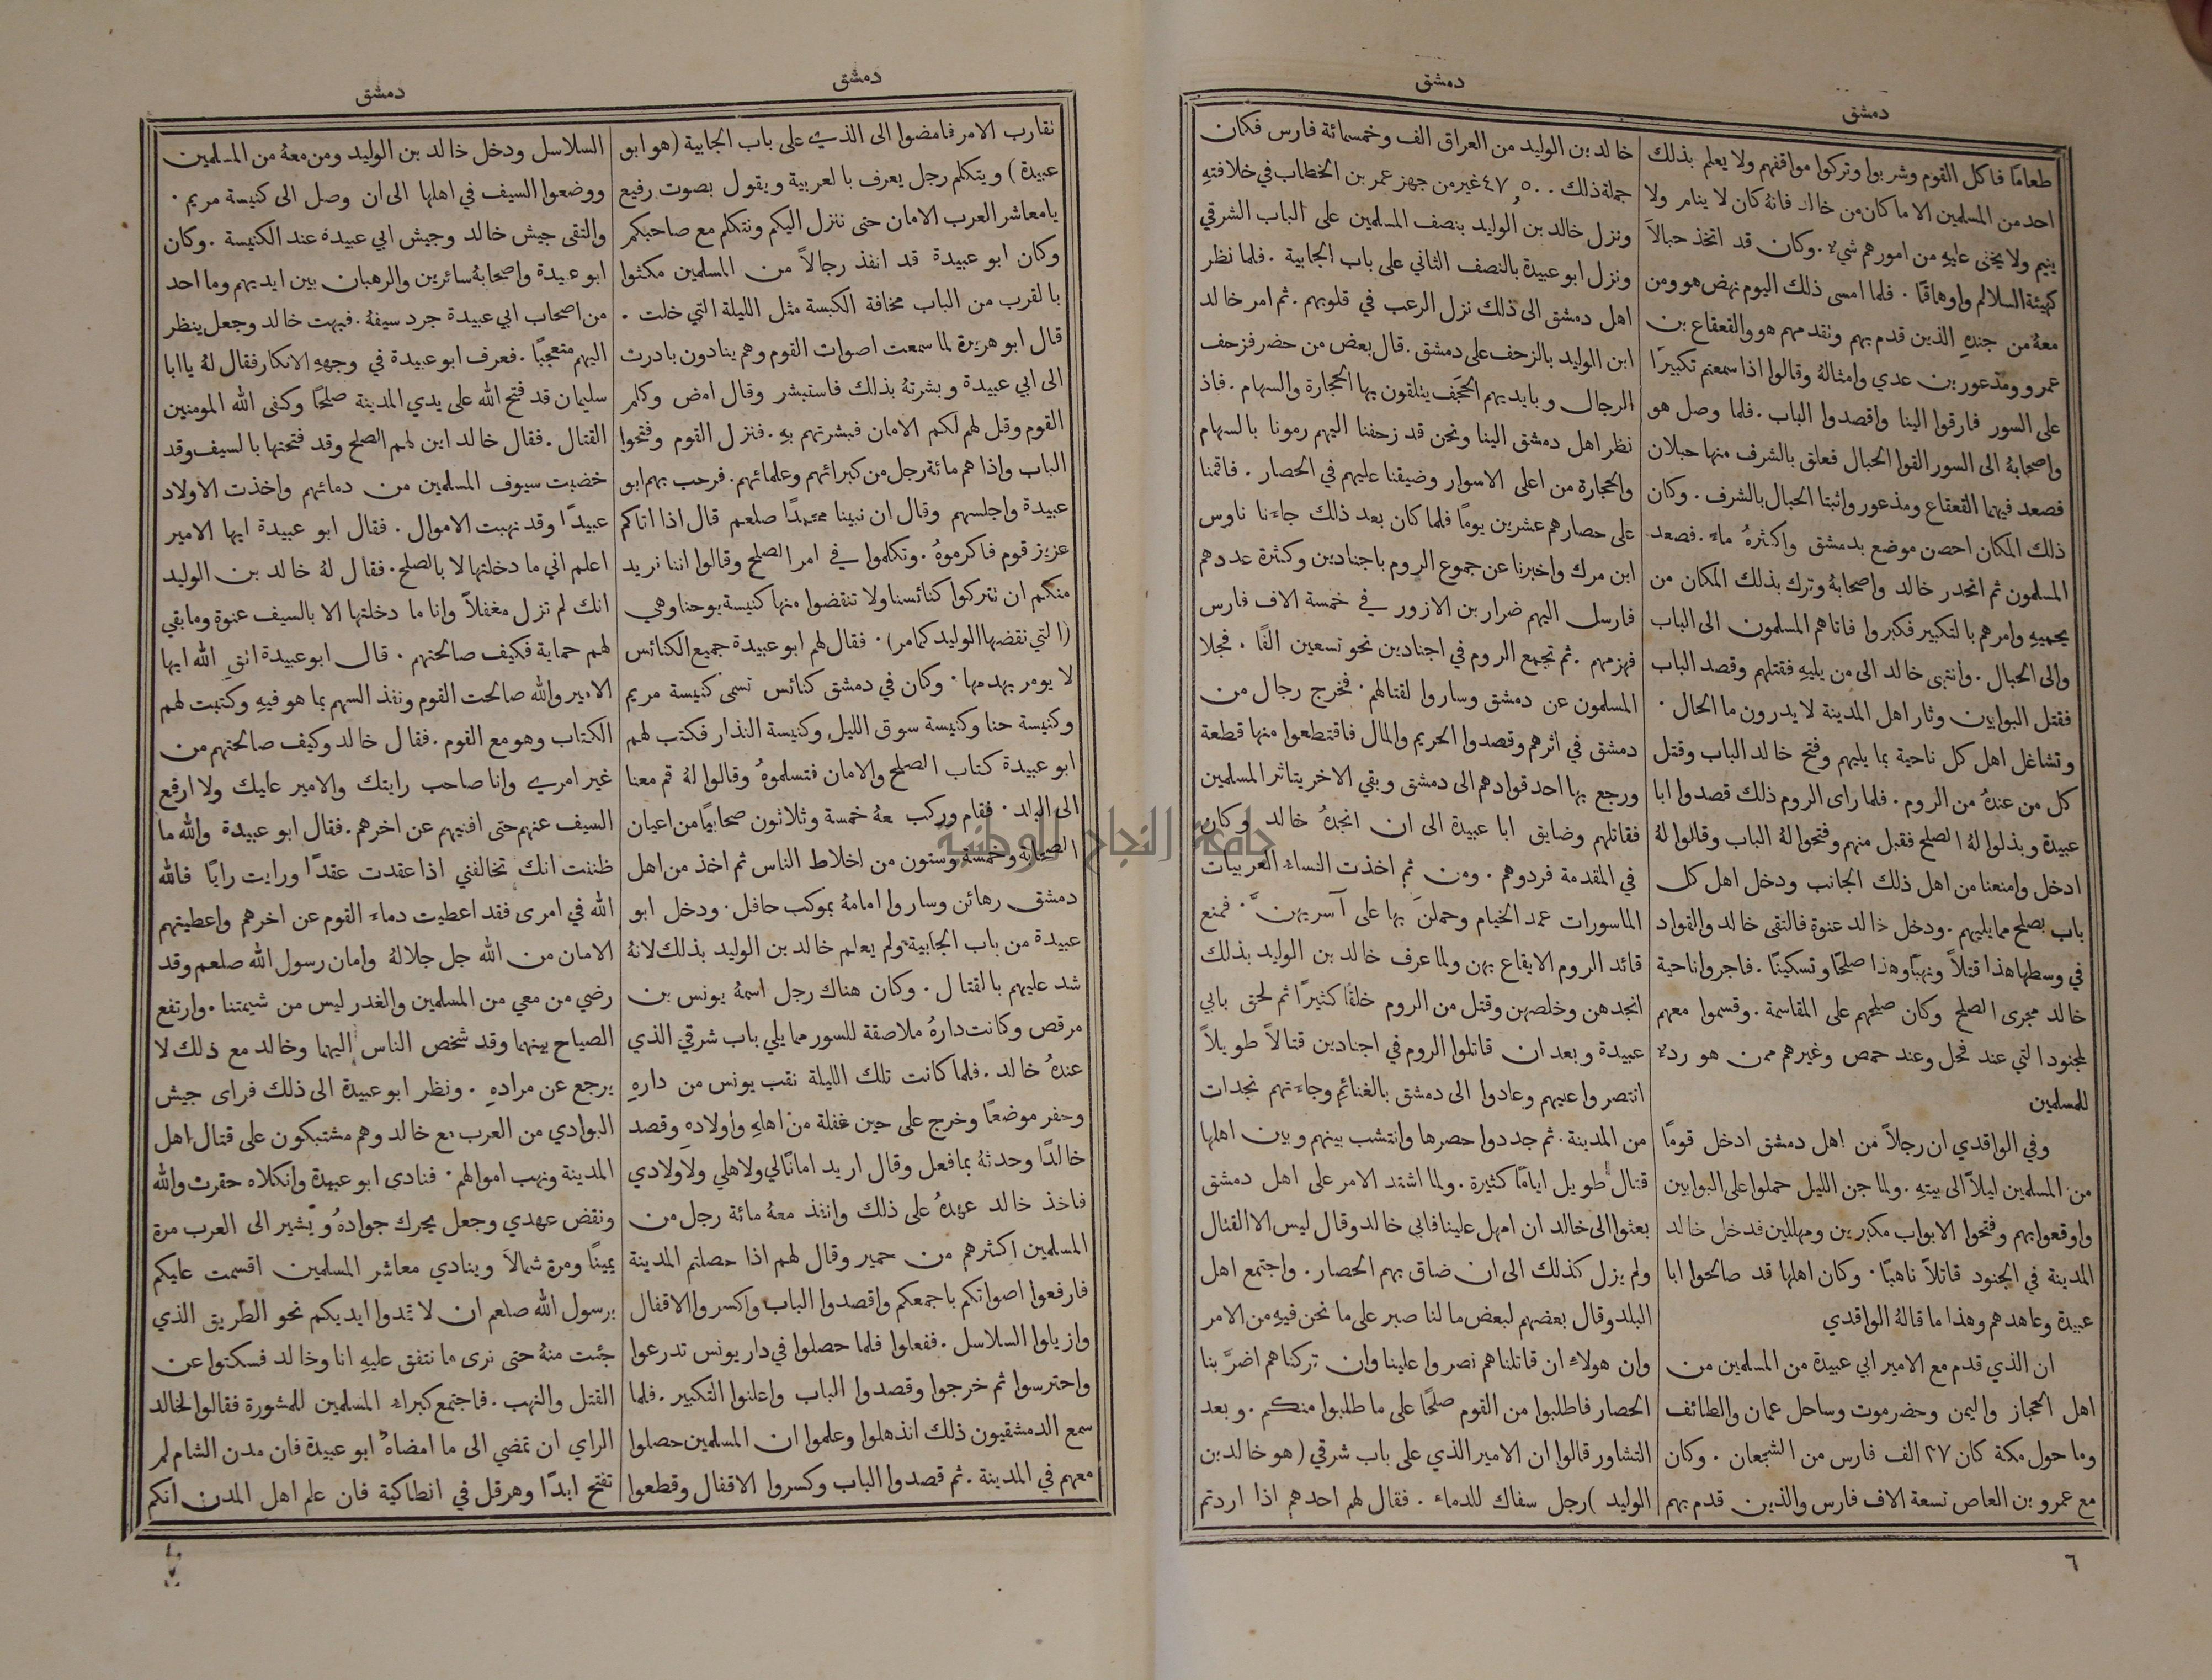 دمشق
دمشق
طعامًا فاكل القوم وشربوا وتركوا مواقفهم ولا يعلم بذلك
احد من المسلمين الا ما كان من خالد فانهُ كان لا ينام ولا
ينيم ولا يخفى عليهِ من امورهم شيء. وكان قد اتخذ حبالاً
كهيئة السلالم واوهاقًا. فلما امسى ذلك اليوم نهض هو ومن
معهُ من جندهِ الذين قدم بهم ونقدمهم هو والقعقاع بن
عمرو ومذعور بن عدي وامثالهُ وقالوا اذا سمعتم تكبيرًا
على السور فارقوا الينا واقصدوا الباب. فلما وصل هو
واصحابهُ الى السور القوا الحبال فعلق بالشرف منها حبلان
فصعد فيهما القعقاع ومذعور واثبتا الحبال بالشرف. وكان
ذلك المكان احصن موضع بدمشق واكثرهُ ماء. فصعد
المسلمون ثم انحدر خالد واصحابهُ وترك بذلك المكان من
يحميهِ وامرهم بالتكبير فكبروا فاتاهم المسلمون الى الباب
والى الحبال. وانتهى خالد الى من يليهِ فقتلهم وقصد الباب
فقتل البوابين وثار اهل المدينة لا يدرون ما الحال.
وتشاغل اهل كل ناحية بما يليهم وفتح خالد الباب وقتل
كل من عندهُ من الروم. فلما راى الروم ذلك قصدوا ابا
عبيدة وبذلوا لهُ الصلح فقبل منهم وفتحوا لهُ الباب وقالوا لهُ
ادخل وامنعنا من اهل ذلك الجانب ودخل اهل كل
باب بصلح مما يليهم. ودخل خالد عنوة فالتقى خالد والقواد
في وسطها هذا قتلاً ونهبًا وهذا صلحًا وتسكينًا. فاجروا ناحية
خالد مجرى الصلح وكان صلحهم على المقاسمة. وقسموا معهم
لجنود التي عند فحل وعند حمص وغيرهم ممن هو ردء
للمسلمين
وفي الواقدي ان رجلاً من اهل دمشق ادخل قومًا
من المسلمين ليلاً الى بيتهِ. ولما جن الليل حملوا على البوابين
واوقعوا بهم وفتحوا الابواب مكبرين ومهللين فدخل خالد
المدينة في الجنود قاتلاً ناهبًا. وكان اهلها قد صالحوا ابا
عبيدة وعاهدهم وهذا ما قالهُ الواقدي
ان الذي قدم مع الامير ابي عبيدة من المسلمين من
اهل الحجاز واليمن وحضرموت وساحل عمان والطائف
وما حول مكة كان ٢٧ الف فارس من الشجعان. وكان
مع عمرو بن العاص تسعة الاف فارس والذين قدم بهم
خالد بن الوليد من العراق الف وخمسمائة فارس فكان
جملة ذلك ٤٧,٥٠٠ غير من جهز عمر بن الخطاب في خلافتهِ
ونزل خالد بن الوليد بنصف المسلمين على الباب الشرقي
ونزل ابو عبيدة بالنصف الثاني على باب الجابية. فلما نظر
اهل دمشق الى ذلك نزل الرعب في قلوبهم. ثم امر خالد
ابن الوليد بالزحف على دمشق. قال بعض من حضر فزحف
الرجال وبايديهم الحجَف يتلقون بها الحجارة والسهام. فاذ
نظر اهل دمشق الينا ونحن قد زحفنا اليهم رمونا بالسهام
والحجارة من اعلى الاسوار وضيقنا عليهم في الحصار. فاقمنا
على حصارهم عشرين يومًا فلما كان بعد ذلك جاءنا ناوس
ابن مرك واخبرنا عن جموع الروم باجنادين وكثرة عددهم
فارسل اليهم ضرار بن الازور في خمسة الاف فارس
فهزمهم. ثم تجمع الروم في اجنادين نحو تسعين الفًا. فجلا
المسلمون عن دمشق وساروا لقتالهم. فخرج رجال من
دمشق في اثرهم وقصدوا الحريم والمال فاقتطعوا منها قطعة
ورجع بها احد قوادهم الى دمشق وبقي الاخر يتاثر المسلمين
فقاتلهم وضايق ابا عبيدة الى ان انجدهُ خالد وكان
في المقدمة فردوهم. ومن ثم اخذت النساء العربيات
الماسورات عمد الخيام وحملنَ بها على آسريهنَّ. فمنع
قائد الروم الايقاع بهن ولما عرف خالد بن الوليد بذلك
انجدهن وخلصهن وقتل من الروم خلقًا كثيرًا ثم لحق بابي
عبيدة وبعد ان قاتلوا الروم في اجنادين قتالاً طويلاً
انتصروا عليهم وعادوا الى دمشق بالغنائم وجاءتهم نجدات
من المدينة. ثم جددوا حصرها وانتشب بينهم وبين اهلها
قتال طويل ايامًا كثيرة. ولما اشتد الامر على اهل دمشق
بعثوا الى خالد ان امهل علينا فابى خالد وقال ليس الا القتال
ولم يزل كذلك الى ان ضاق بهم الحصار. واجتمع اهل
البلد وقال بعضهم لبعض ما لنا صبر على ما نحن فيهِ من الامر
وان هولاء ان قاتلناهم نصروا علينا وان تركناهم اضرَّ بنا
الحصار فاطلبوا من القوم صلحًا على ما طلبوا منكم. وبعد
التشاور قالوا ان الامير الذي على باب شرقي (هو خالد بن
الوليد) رجل سفاك للدماء. فقال لهم احدهم اذا اردتم
٦
دمشق
دمشق
نقارب الامر فامضوا الى الذي على باب الجابية (هو ابو
عبيدة) ويتكلم رجل يعرف بالعربية ويقول بصوت رفيع
يا معاشر العرب الامان حتى ننزل اليكم ونتكلم مع صاحبكم
وكان ابو عبيدة قد انفذ رجالاً من المسلمين مكثوا
بالقرب من الباب مخافة الكبسة مثل الليلة التي خلت.
قال ابو هريرة لما سمعت اصوات القوم وهم ينادون بادرت
الى ابي عبيدة وبشرتهُ بذلك فاستبشر وقال امض وكلم
القوم وقل لهم لكم الامان فبشرتهم بهِ. فنزل القوم وفتحوا
الباب واذا هم مائة رجل من كبرائهم وعلمائهم. فرحب بهم ابو
عبيدة واجلسهم وقال ان نبينا محمدًا صلعم قال اذا اتاكم
عزيز قوم فاكرموهُ. وتكلموا في امر الصلح وقالوا اننا نريد
منكم ان نتركوا كنائسنا ولا تنقضوا منها كنيسة يوحنا وهي
(التي نقضها الوليد كما مر). فقال لهم ابو عبيدة جميع الكنائس
لا يومر بهدمها. وكان في دمشق كنائس تسمى كنيسة مريم
وكنيسة حنا وكنيسة سوق الليل وكنيسة النذار فكتب لهم
ابو عبيدة كتاب الصلح والامان فتسلموهُ وقالوا لهُ قم معنا
الى البلد. فقام وركب معهُ خمسة وثلاثون صحابيًا من اعيان
الصحابة وخمسة وستون من اخلاط الناس ثم اخذ من اهل
دمشق رهائن وساروا امامهُ بموكب حافل. ودخل ابو
عبيدة من باب الجابية ولم يعلم خالد بن الوليد بذلك لانهُ
شد عليهم بالقتال. وكان هناك رجل اسمهُ يونس بن
مرقص وكانت دارهُ ملاصقة للسور مما يلي باب شرقي الذي
عندهُ خالد. فلما كانت تلك الليلة نقب يونس من دارهِ
وحفر موضعًا وخرج على حين غفلة من اهلهِ واولادهِ وقصد
خالدًا وحدثهُ بما فعل وقال اريد امانًا لي ولاهلي ولاولادي
فاخذ خالد عهدهُ على ذلك وانفذ معهُ مائة رجل من
المسلمين اكثرهم من حمير وقال لهم اذا حصلتم المدينة
فارفعوا اصواتكم باجمعكم واقصدوا الباب واكسروا الاقفال
وازيلوا السلاسل. ففعلوا فلما حصلوا في دار يونس تدرعوا
واحترسوا ثم خرجوا وقصدوا الباب واعلنوا التكبير. فلما
سمع الدمشقيون ذلك انذهلوا وعلموا ان المسلمين حصلوا
معهم في المدينة. ثم قصدوا الباب وكسروا الاقفال وقطعوا
السلاسل ودخل خالد بن الوليد ومن معهُ من المسلمين
ووضعوا السيف في اهلها الى ان وصل الى كنيسة مريم.
والتقى جيش خالد وجيش ابي عبيدة عند الكنيسة. وكان
ابو عبيدة واصحابهُ سائرين والرهبان بين ايديهم وما احد
من اصحاب ابي عبيدة جرد سيفهُ. فبهت خالد وجعل ينظر
اليهم متعجبًا. فعرف ابو عبيدة في وجههِ الانكار فقال لهُ يا ابا
سليمان قد فتح الله على يدي المدينة صلحًا وكفى الله المومنين
القتال. فقال خالد اين لهم الصلح وقد فتحتها بالسيف وقد
خضبت سيوف المسلمين من دمائهم واخذت الاولاد
عبيدًا وقد نهبت الاموال. فقال ابو عبيدة ايها الامير
اعلم اني ما دخلتها الا بالصلح. فقال لهُ خالد بن الوليد
انك لم تزل مغفلاً وانا ما دخلتها الا بالسيف عنوة وما بقي
لهم حماية فكيف صالحتهم. قال ابو عبيدة اتقِ الله ايها
الامير والله صالحت القوم ونفذ السهم بما هو فيهِ وكتبت لهم
الكتاب وهو مع القوم. فقال خالد وكيف صالحتهم من
غير امري وانا صاحب رايتك والامير عليك ولا ارفع
السيف عنهم حتى افنيهم عن اخرهم. فقال ابو عبيدة والله ما
ظننت انك تخالفني اذا عقدت عقدًا ورايت رايًا فالله
الله في امرى فقد اعطيت دماء القوم عن اخرهم واعطيتهم
الامان من الله جل جلالهُ وامان رسول الله صلعم وقد
رضي من معي من المسلمين والغدر ليس من شيمتنا. وارتفع
الصياح بينهما وقد شخص الناس اليهما وخالد مع ذلك لا
يرجع عن مرادهِ. ونظر ابو عبيدة الى ذلك فراى جيش
البوادي من العرب مع خالد وهم مشتبكون على قتال اهل
المدينة ونهب اموالهم. فنادى ابو عبيدة واثكلاه حقرت والله
ونقض عهدي وجعل يحرك جوادهُ ويشير الى العرب مرة
يمينًا ومرة شمالاً وينادي معاشر المسلمين اقسمت عليكم
برسول الله صلعم ان لا تمدوا ايديكم نحو الطريق الذي
جئت منهُ حتى نرى ما نتفق عليهِ انا وخالد فسكتوا عن
القتل والنهب. فاجتمع كبراء المسلمين للمشورة فقالوا لخالد
الراي ان تمضي الى ما امضاهُ ابو عبيدة فان مدن الشام لم
تفتح ابدًا وهرقل في انطاكية فان علم اهل المدن انكم
جامعة النجاح الوطنية